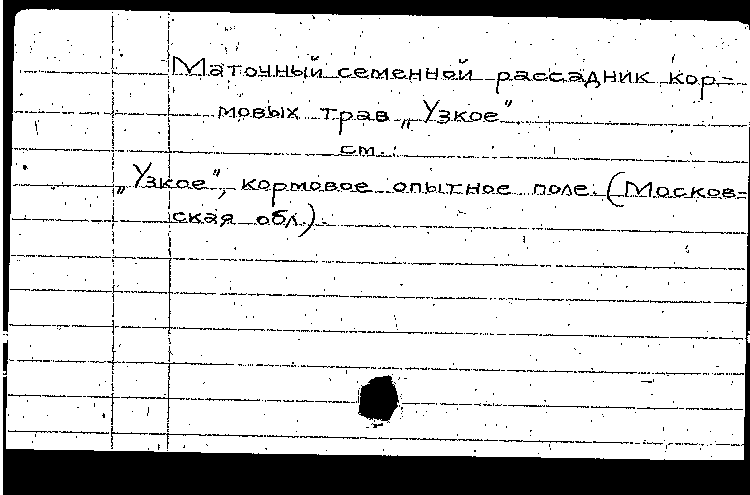 Маточный семенной рассадник кор-
мовых трав „Узкое"
см.:
„Узкое", кормовое опытное поле. (Москов-
ская обл.).